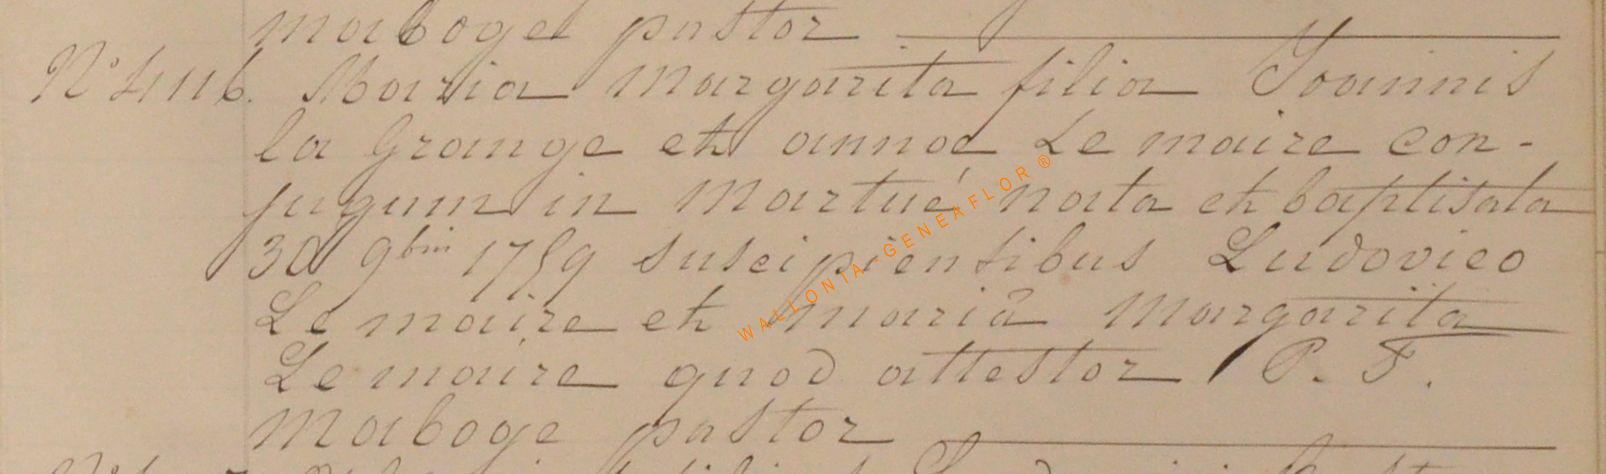 maboge pastor
N° 4116. Maria margarita filia Joannis
la Grange et annae Le maire con-
jugum in martué nata et baptisata
30 9bris 1759 suscipientibus Ludovico
Le maire et mariâ margarita
Le maire quod attestor P. F.
maboge pastor
WALLONIA-GENEAFLOR ®